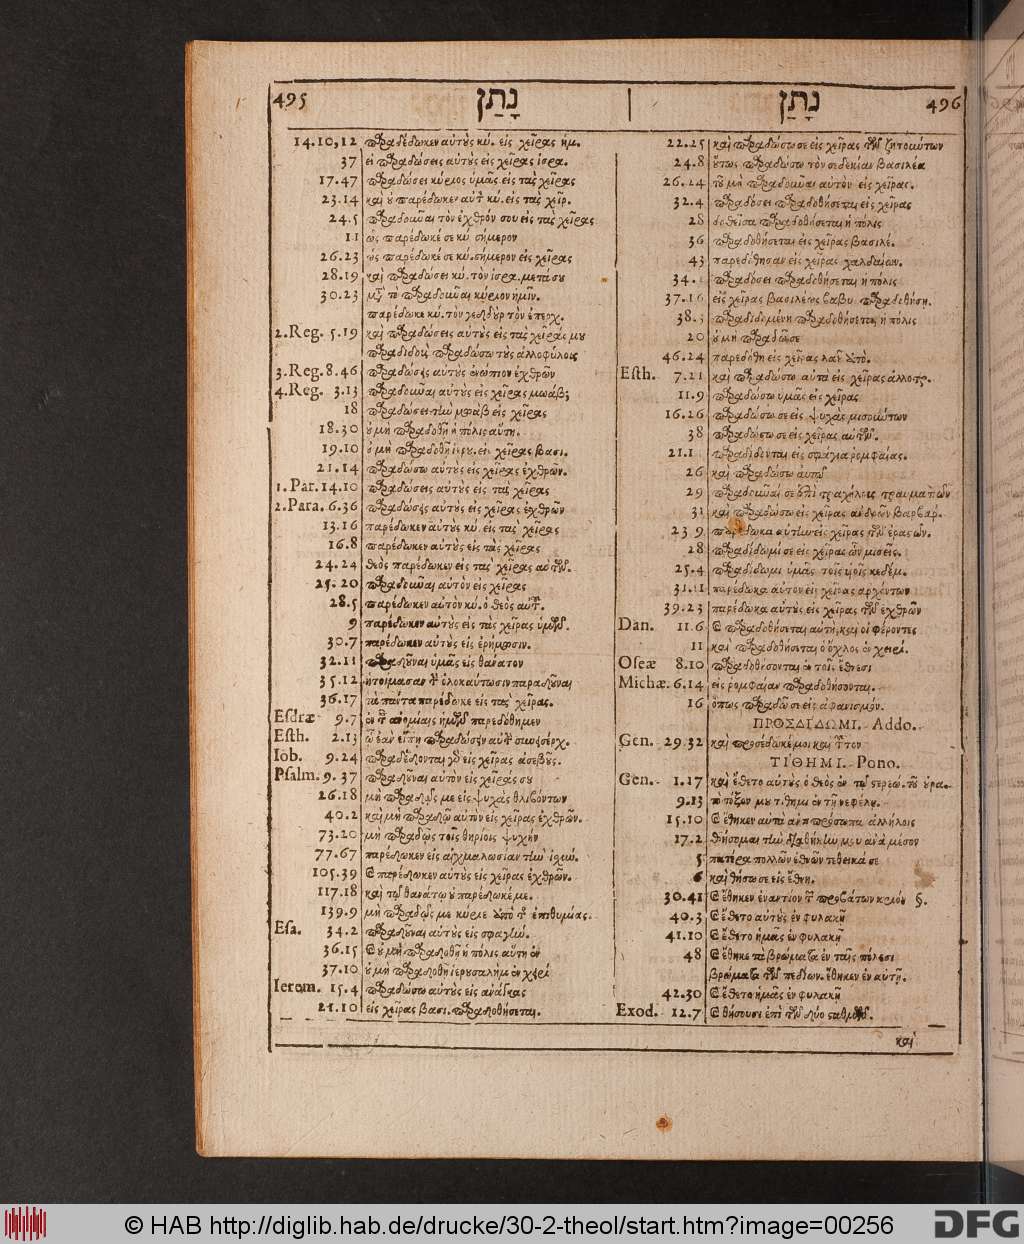 495 נָתַן נָתַן 496
14.10,12 παραδέδωκεν αὐτοὺς κύ. εἰς χεῖρας ἡμ.
37 εἰ παραδώσεις αὐτοὺς εἰς χεῖρας ἰσρα.
17.47 παραδώσει κύριος ὑμᾶς εἰς τὰς χεῖρας
23.14 καὶ οὐ παρέδωκεν αὐτὸν κύ. εἰς τὰς χεῖρ.
24.5 παραδοῦναι τὸν ἐχθρόν σου εἰς τὰς χεῖρας
11 ὡς παρέδωκέ σε κύ. σήμερον
26.23 ὡς παρέδωκέ σε κύ. σήμερον εἰς χεῖρας
28.19 καὶ παραδώσει κύ. τὸν ἰσρα. μετὰ σοῦ
30.23 μετὰ τὸ παραδοῦναι κύριον ἡμῖν.
παρέδωκε κύ. τὸν γεδδοὺρ τὸν ἐπερχ.
2.Reg. 5.19 καὶ παραδώσεις αὐτοὺς εἰς τὰς χεῖράς μου
παραδιδοὺς παραδώσω τοὺς ἀλλοφύλους
3.Reg. 8.46 παραδώσεις αὐτοὺς ἐνώπιον ἐχθρῶν
4.Reg. 3.13 παραδοῦναι αὐτοὺς εἰς χεῖρας μωάβ;
18 παραδώσει τὴν μωὰβ εἰς χεῖρας
18.30 οὐ μὴ παραδοθῇ ἡ πόλις αὕτη.
19.10 οὐ μὴ παραδοθῇ ἱερου. εἰς χεῖρας βασι.
21.14 παραδώσω αὐτοὺς εἰς χεῖρας ἐχθρῶν.
1.Par. 14.10 παραδώσεις αὐτοὺς εἰς τὰς χεῖρας
2.Para. 6.36 παραδώσεις αὐτοὺς εἰς χεῖρας ἐχθρῶν
13.16 παρέδωκεν αὐτοὺς κύ. εἰς τὰς χεῖρας
16.8 παρέδωκεν αὐτοὺς εἰς τὰς χεῖρας
24.24 θεὸς παρέδωκεν εἰς τὰς χεῖρας αὐτῶν.
25.20 παραδοῦναι αὐτὸν εἰς χεῖρας
28.5 παρέδωκεν αὐτὸν κύ. ὁ θεὸς αὐτοῦ.
9 παρέδωκεν αὐτοὺς εἰς τὰς χεῖρας ὑμῶν.
30.7 παρέδωκεν αὐτοὺς εἰς ἐρήμωσιν.
32.11 παραδοῦναι ὑμᾶς εἰς θάνατον
35.12 ἡτοίμασαν τὴν ὁλοκαύτωσιν παραδοῦναι
36.17 τὰ πάντα παρέδωκε εἰς τὰς χεῖρας.
Esdræ 9.7 ἐν ταῖς ἀνομίαις ἡμῶν παρεδόθημεν
Esth. 2.13 ᾧ ἐὰν εἴπῃ παραδώσειν αὐτὴν συνεισέρχ.
Iob. 9.24 παραδέδονται γὸ εἰς χεῖρας ἀσεβοῦς.
Psalm. 9.37 παραδοῦναι αὐτὸν εἰς χεῖράς σου
26.18 μὴ παραδῷς με εἰς ψυχὰς θλιβόντων
40.2 καὶ μὴ παραδῷ αὐτὸν εἰς χεῖρας ἐχθρῶν.
73.20 μὴ παραδῷς τοῖς θηρίοις ψυχὴν
77.67 παρέδωκεν εἰς αἰχμαλωσίαν τὴν ἰσχύν.
105.39 ϗ παρέδωκεν αὐτοὺς εἰς χεῖρας ἐχθρῶν.
117.18 καὶ τῷ θανάτῳ οὐ παρέδωκέ με.
139.9 μὴ παραδῷς με κύριε ἀπὸ τῆς ἐπιθυμίας.
Esa. 34.2 παραδοῦναι αὐτοὺς εἰς σφαγήν.
36.15 ϗ οὐ μὴ παραδοθῇ ἡ πόλις αὕτη ἐν
37.10 οὐ μὴ παραδοθῇ ἱερουσαλὴμ ἐν χειρὶ
Ierem. 15.4 παραδώσω αὐτοὺς εἰς ἀνάγκας
21.10 εἰς χεῖρας βασι. παραδοθήσεται.
22.25 καὶ παραδώσω σε εἰς χεῖρας τῶν ζητούντων
24.8 οὕτως παραδώσω τὸν σεδεκίαν βασιλέα
26.24 τοῦ μὴ παραδοῦναι αὐτὸν εἰς χεῖρας.
32.4 παραδόσει παραδοθήσεται εἰς χεῖρας
28 δοθεῖσα παραδοθήσεται ἡ πόλις
36 παραδοθήσεται εἰς χεῖρας βασιλέ.
43 παρεδόθησαν εἰς χεῖρας χαλδαίων.
34. παραδόσει παραδοθήσεται ἡ πόλις
37.16 εἰς χεῖρας βασιλέως βαβυ. παραδοθήσῃ.
38.3 παραδιδομένη παραδοθήσεται ἡ πόλις
20 οὐ μὴ παραδῶσε
46.24 παρεδόθη εἰς χεῖρας λαοῦ ἀπὸ.
Esth. 7.21 καὶ παραδώσω αὐτὰ εἰς χεῖρας ἀλλοτρ.
11.9 παραδώσω ὑμᾶς εἰς χεῖρας
16.26 παραδώσω σε εἰς ψυχὰς μισούντων
38 παραδώσω σε εἰς χεῖρας αὐτῶν.
21.1 παραδίδονται εἰς σφάγια ρομφαίας.
26 καὶ παραδώσω αὐτῷ
29 παραδοῦναί σε ἐπὶ τραχήλους τραυματιῶν
31 καὶ παραδώσω εἰς χεῖρας ἀνδρῶν βαρβάρ.
23 9 παρέδωκα αὐτὴν εἰς χεῖρας τῶν ἐραστῶν.
28 παραδίδωμί σε εἰς χεῖρας ὧν μισεῖς.
25.4 παραδίδωμι ὑμᾶς τοῖς υἱοῖς κεδέμ.
31.11 παρέδωκα αὐτὸν εἰς χεῖρας ἀρχόντων
39.23 παρέδωκα αὐτοὺς εἰς χεῖρας τῶν ἐχθρῶν
Dan. 11.6 ϗ παραδοθήσεται αὐτὴ, καὶ οἱ φέροντες
11 καὶ παραδοθήσεται ὁ ὄχλος ἐν χειρί.
Oseæ 8.10 παραδοθήσονται ἐν τοῖς ἔθνεσι
Michæ. 6.14 εἰς ρομφαίαν παραδοθήσονται.
16 ὅπως παραδῶ σε εἰς ἀφανισμόν.
ΠΡΟΣΔΙΔΩΜΙ. Addo.
Gen. 29.32 καὶ προσέδωκέ μοι καὶ τοῦτον
ΤΙΘΗΜΙ. Pono.
Gen. 1.17 καὶ ἔθετο αὐτοὺς ὁ θεὸς ἐν τῷ στερεώ. τοῦ οὐρα.
9.13 τὸ τόξον μου τίθημι ἐν τῇ νεφέλῃ.
15.10 ϗ ἔθηκεν αὐτὰ ἀντιπρόσωπα ἀλλήλοις
17.2 θήσομαι τὴν διαθήκην μου ἀνὰ μέσον
5 πατέρα πολλῶν ἐθνῶν τέθεικά σε
6 καὶ θήσω σε εἰς ἔθνη.
30.41 ϗ ἔθηκεν ἐναντίον τῶν προβάτων κριόν §.
40.3 ϗ ἔθετο αὐτοὺς ἐν φυλακῇ
41.10 ϗ ἔθετο ἡμᾶς ἐν φυλακῇ
48 ϗ ἔθηκε τὰ βρώματα ἐν ταῖς πόλεσι
βρώματα τῶν πεδίων. ἔθηκεν ἐν αὐτῇ.
42.30 ϗ ἔθετο ἡμᾶς ἐν φυλακῇ
Exod. 12.7 ϗ θήσουσι ἐπὶ τῶν δύο σταθμῶν.
καὶ
© HAB http://diglib.hab.de/drucke/30-2-theol/start.htm?image=00256 DFG